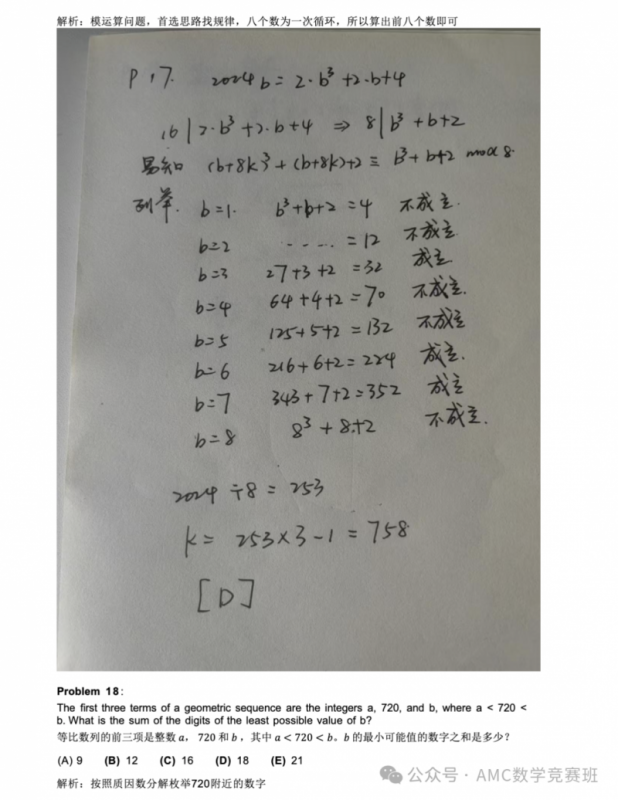 解析：模运算问题，首选思路找规律，八个数为一次循环，所以算出前八个数即可
P 17. 2024b = 2·b³+2·b+4
16 | 2·b³+2·b+4 ⇒ 8 | b³+b+2
易知 (b+8k)³+(b+8k)+2 ≡ b³+b+2 mod 8.
列举. b=1. b³+b+2 = 4 不成立.
b=2 ····· = 12 不成立.
b=3 27+3+2 = 32 成立.
b=4 64+4+2 = 70 不成立.
b=5 125+5+2 = 132 不成立
b=6 216+6+2 = 224 成立.
b=7 343+7+2 = 352 成立
b=8 8³+8+2 不成立.
2024 ÷8 = 253
k = 253×3-1 = 758
[D]
Problem 18:
The first three terms of a geometric sequence are the integers a, 720, and b, where a < 720 <
b. What is the sum of the digits of the least possible value of b?
等比数列的前三项是整数 a， 720 和 b，其中 a < 720 < b。b 的最小可能值的数字之和是多少？
(A) 9 (B) 12 (C) 16 (D) 18 (E) 21
解析：按照质因数分解枚举720附近的数字
公众号 · AMC数学竞赛班